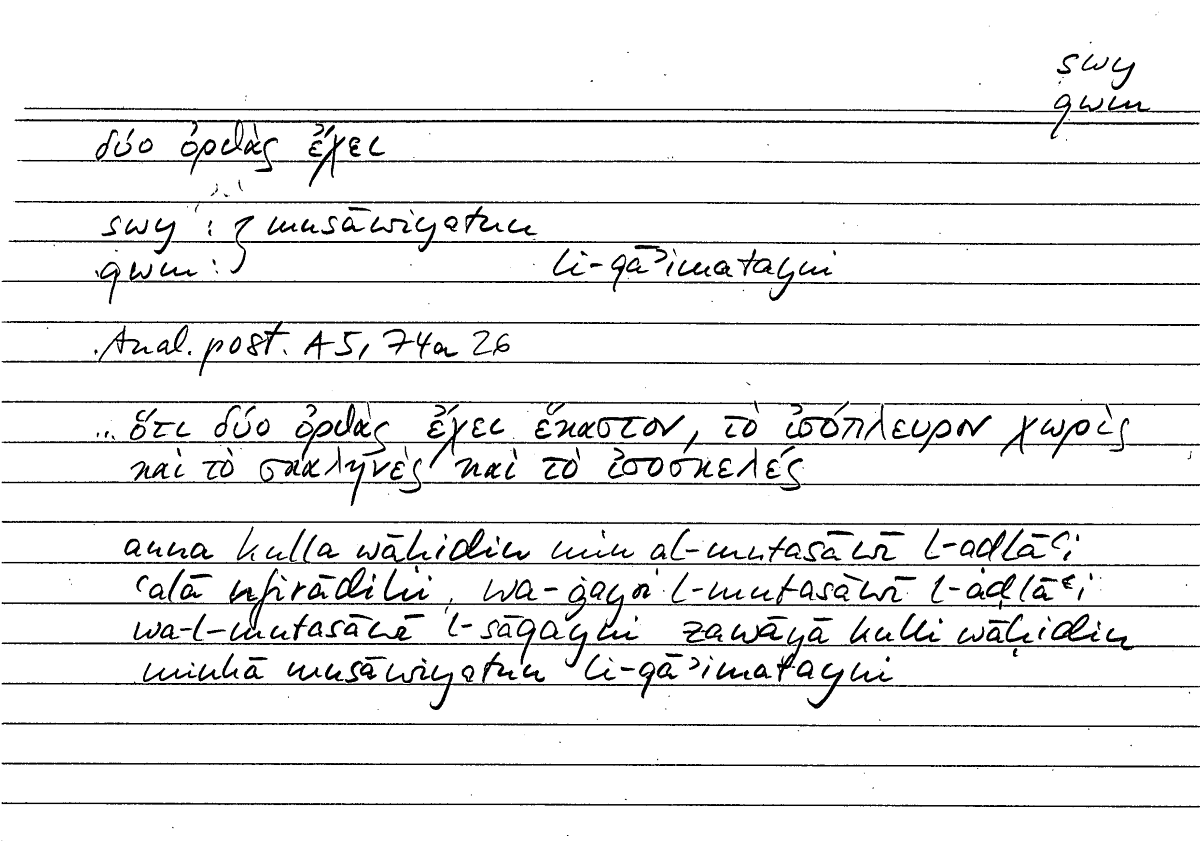 swy
qwm
δύο ὀρθὰς ἔχει
swy : } musāwiyatun
qwm : li-qāʾimatayni
Anal. post. A5, 74a 26
... ὅτι δύο ὀρθὰς ἔχει ἕκαστον, τὸ ἰσόπλευρον χωρὶς
καὶ τὸ σκαληνὲς καὶ τὸ ἰσοσκελές
anna kulla wāḥidin min al-mutasāwī l-aḍlāʿi
ʿalā nfirādihī, wa-ġayri l-mutasāwī l-aḍlāʿi
wa-l-mutasāwī l-sāqayni zawāyā kulli wāḥidin
minhā musāwiyatun li-qāʾimatayni